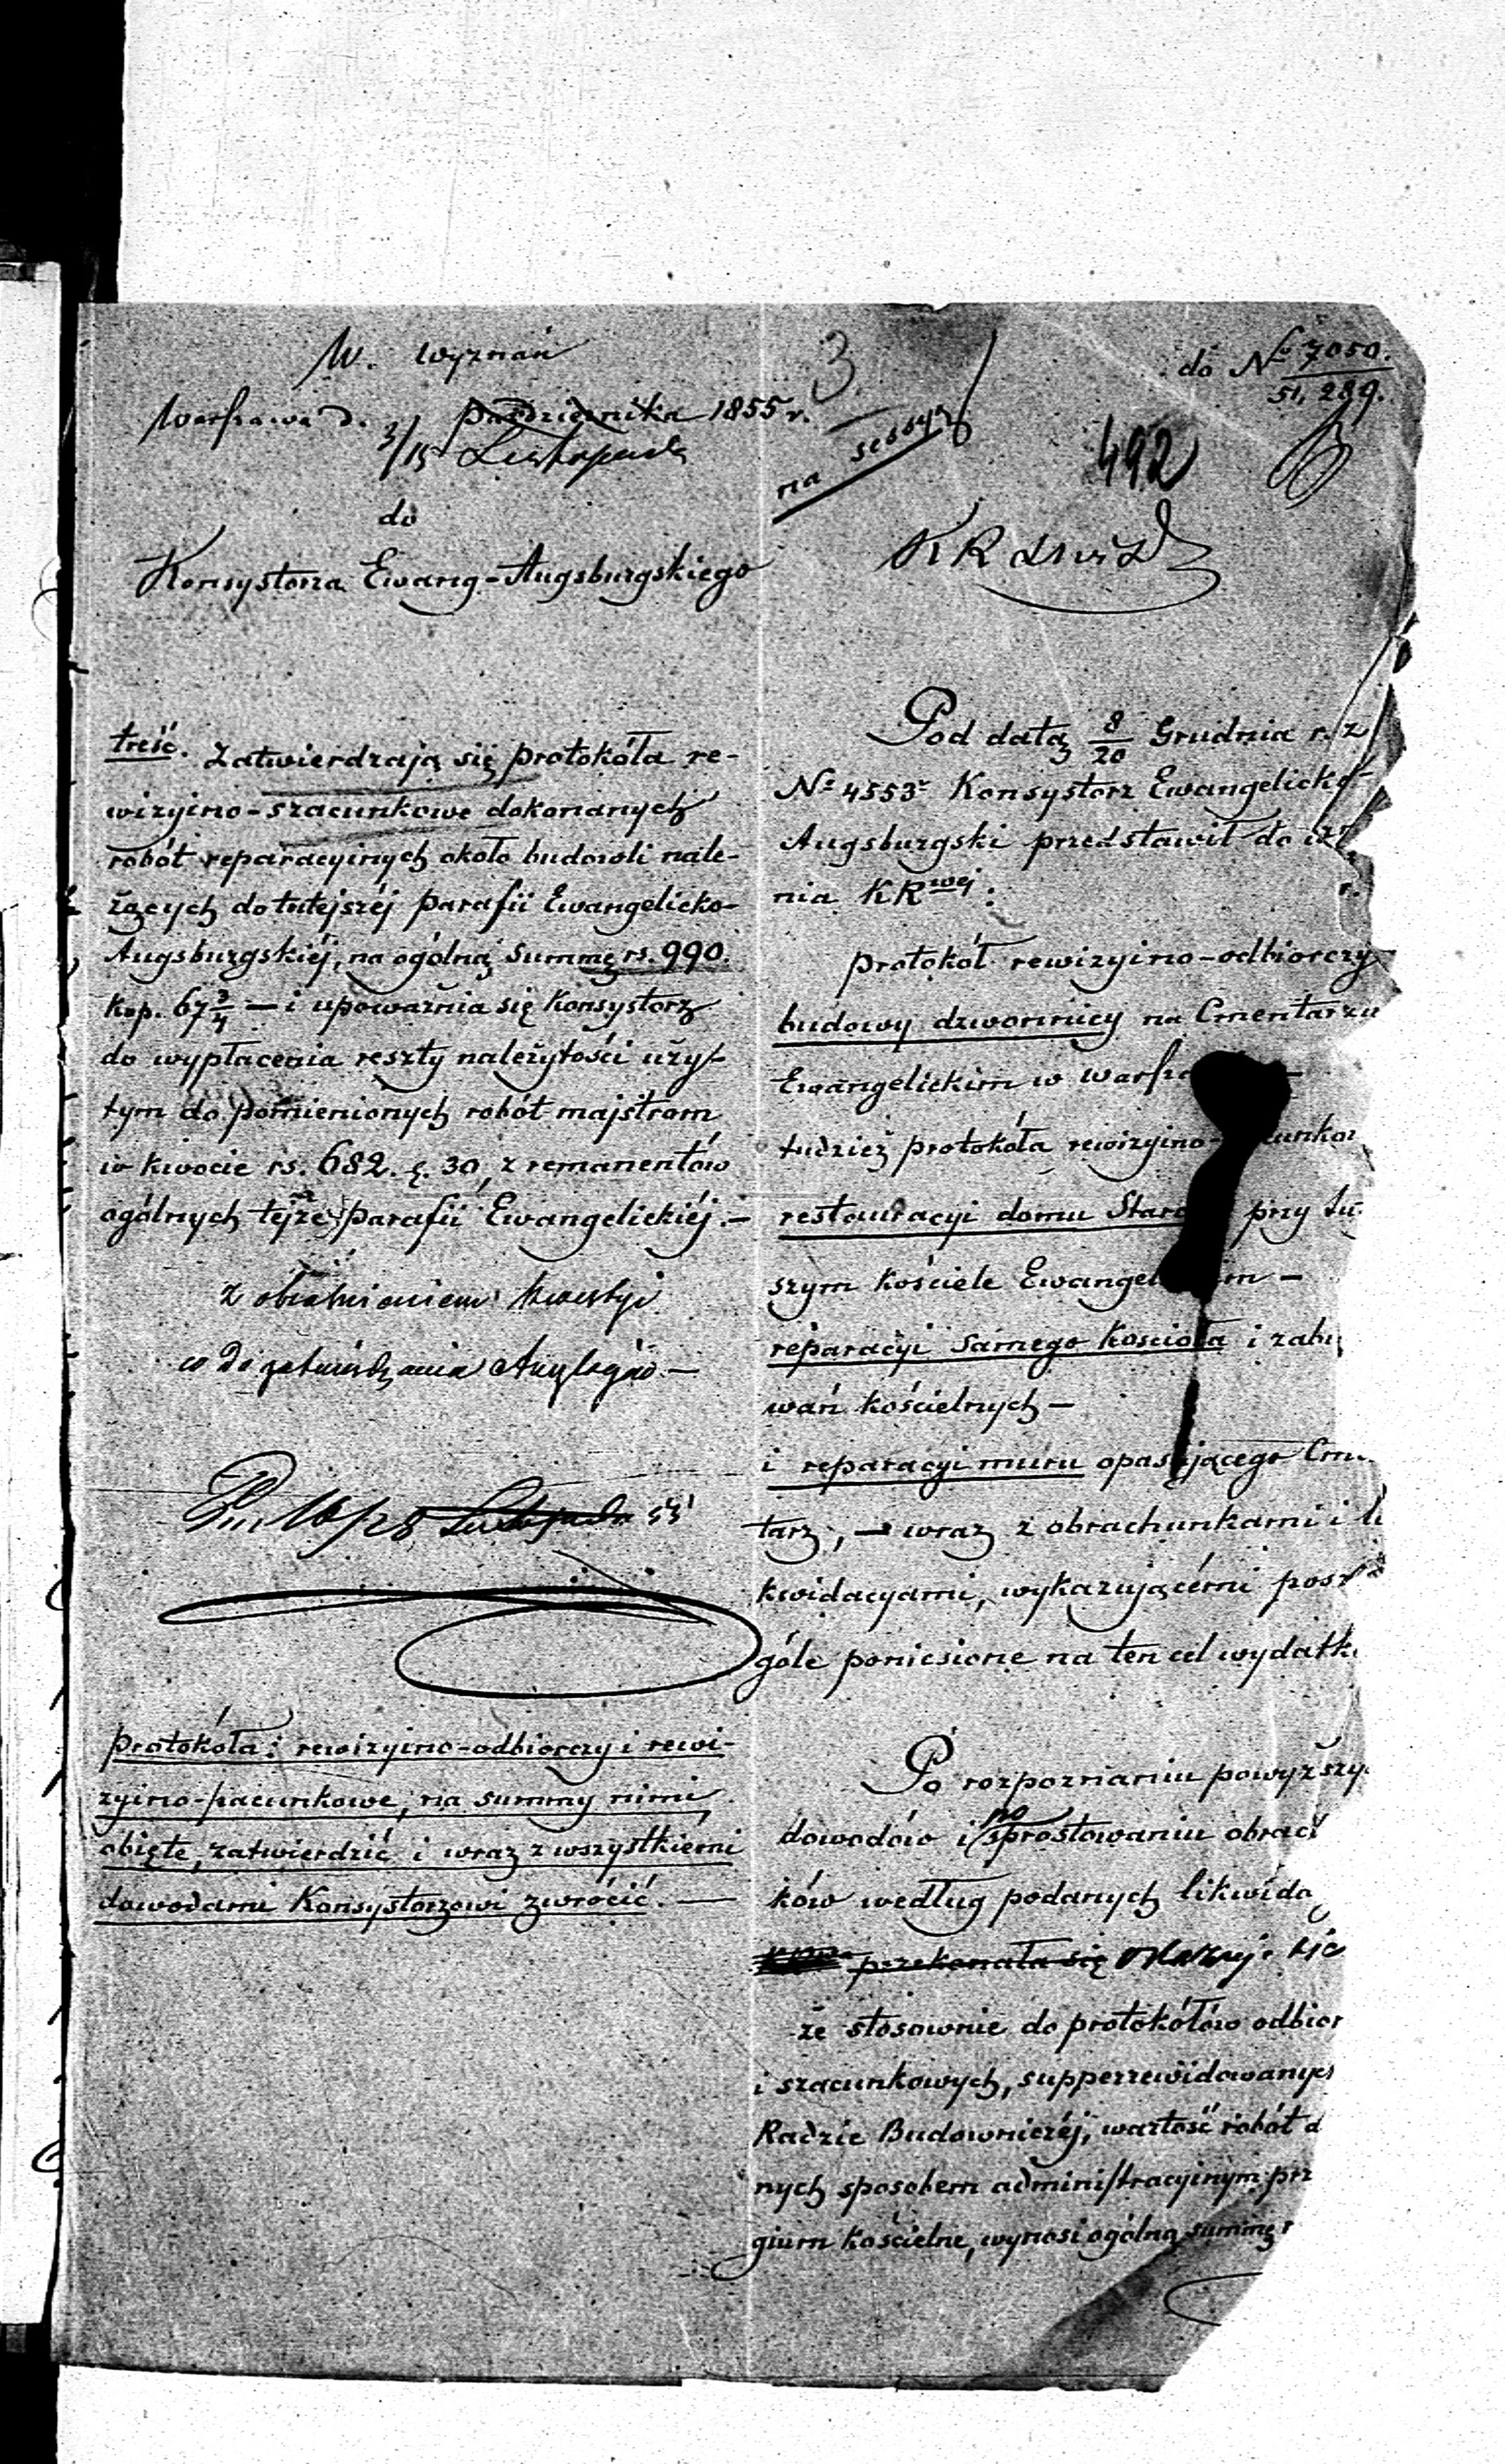 W. Wyznań
Warszawa d. Października 1855 r.
3/15 Listopada
do
Konsystorza Ewang-Augsburgskiego
treść. Zatwierdzają się protokóła re-
wizyjno-szacunkowe dokonanych
robót reparacyjnych około budowli nale-
żących do tutejszéj parafii Ewangelicko-
Augsburgskiéj, na ogólną Summę rs. 990.
kop. 67 3/4 — i upoważnia się Konsystorz
do wypłacenia reszty należytości uży-
tym do pomienionych robót majstrom
w kwocie rs. 682. k. 30, z remanentów
ogólnych tejże parafii Ewangelickiéj. —
z
co do zatwierdzenia —
10/28 Listopada 55
protokóła: rewizyjno-odbiorczy i rewi-
zyjno-szacunkowe, na summy nimi
objęte, zatwierdzić i wraz z wszystkiemi
dowodami Konsystorzowi zwrócić. —
3
na sessyą
do No 7050.
51,289.
492
KR
Pod datą 8/20 Grudnia r. z
No 4553 Konsystorz Ewangelicko-
Augsburgski przedstawił do
nia KRwej:
protokół rewizyjno-odbiorczy
budowy dzwonnicy na Cmentarzu
Ewangelickim w
tudzież protokóła rewizyjno-
restauracyi domu przy
szym kościele
reparacyi samego Kościoła i
wań kościelnych —
i reparacyi muru opasującego
tarz, — wraz z obrachunkami i
kwidacyami, wykazującémi
góle poniesione na ten cel wydatk
Po rozpoznaniu powyższy
dowodów i po sprostowaniu obrach
ków według podanych likwida
przekonała się okazuje się
że stosownie do protokółów odbior
i szacunkowych, supperrewidowanych
Radzie Budowniczéj, wartość robót d
nych sposobem administracyjnym prz
gium kościelne, wynosi ogólną summę r